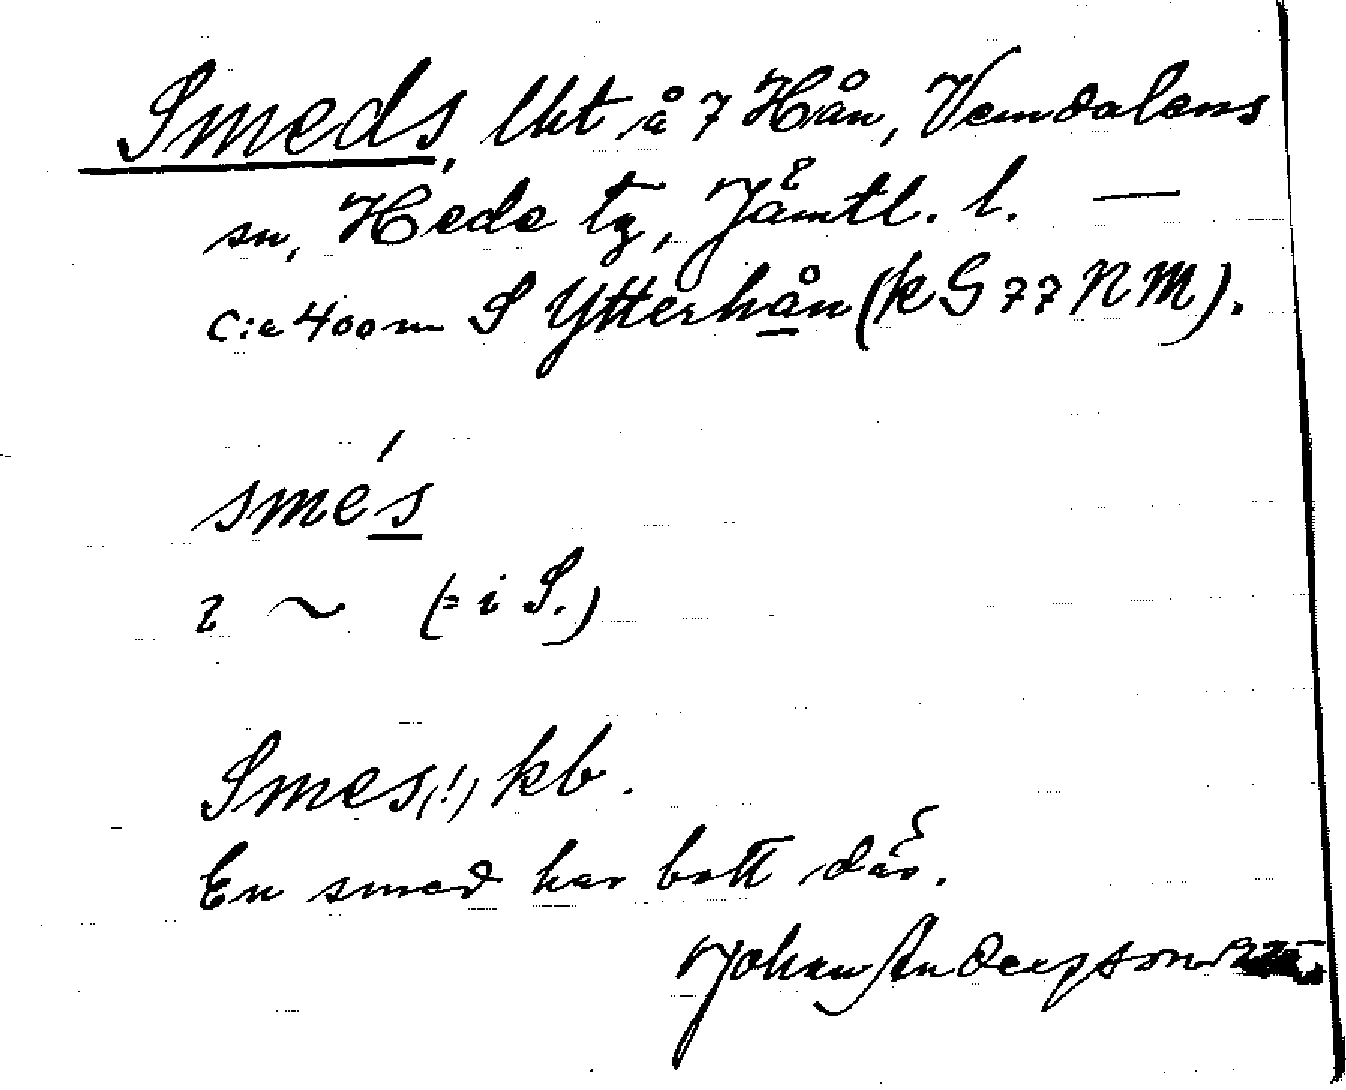 Smeds, lht å 7 Hån, Vemdalens
sn, Hede tg, Jämtl. l. —
c:a 400 m S Ytterhån (k G 77 N M).
smé́s
ı ~ (= i S.)
Smes(!), kb.
En smed har bott där.
Johan Anderpson